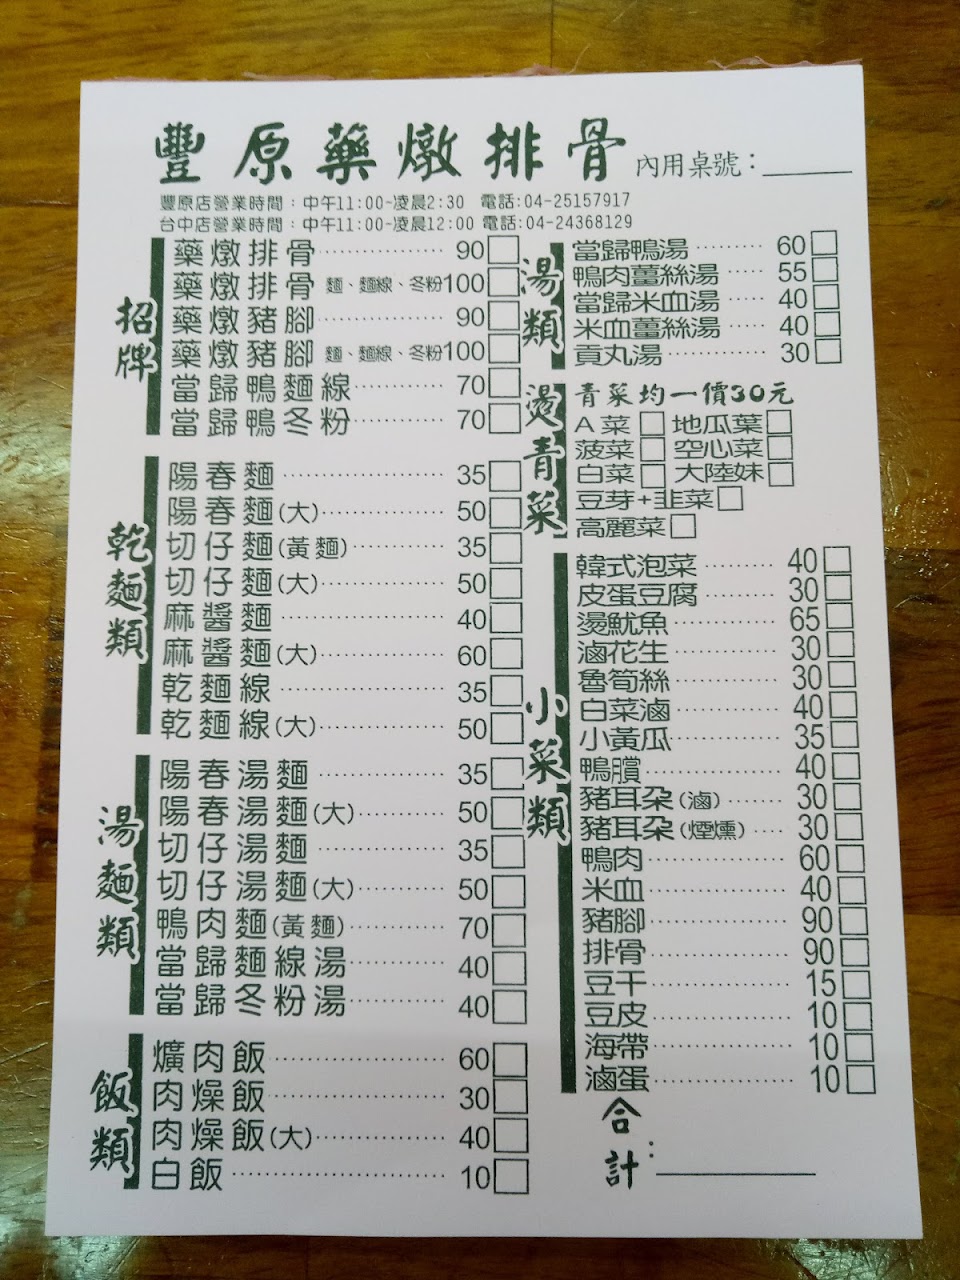 豐原藥燉排骨 內用桌號：
豐原店營業時間：中午11:00-凌晨2:30 電話:04-25157917
台中店營業時間：中午11:00-凌晨12:00 電話:04-24368129
招牌
藥燉排骨 90
藥燉排骨 麵、麵線、冬粉 100
藥燉豬腳 90
藥燉豬腳 麵、麵線、冬粉 100
當歸鴨麵線 70
當歸鴨冬粉 70
乾麵類
陽春麵 35
陽春麵(大) 50
切仔麵(黃麵) 35
切仔麵(大) 50
麻醬麵 40
麻醬麵(大) 60
乾麵線 35
乾麵線(大) 50
湯麵類
陽春湯麵 35
陽春湯麵(大) 50
切仔湯麵 35
切仔湯麵(大) 50
鴨肉麵(黃麵) 70
當歸麵線湯 40
當歸冬粉湯 40
飯類
爌肉飯 60
肉燥飯 30
肉燥飯(大) 40
白飯 10
湯類
當歸鴨湯 60
鴨肉薑絲湯 55
當歸米血湯 40
米血薑絲湯 40
貢丸湯 30
燙青菜
青菜均一價30元
A菜 地瓜葉
菠菜 空心菜
白菜 大陸妹
豆芽+韭菜
高麗菜
小菜類
韓式泡菜 40
皮蛋豆腐 30
燙魷魚 65
滷花生 30
魯筍絲 30
白菜滷 40
小黃瓜 35
鴨臏 40
豬耳朵(滷) 30
豬耳朵(煙燻) 30
鴨肉 60
米血 40
豬腳 90
排骨 90
豆干 15
豆皮 10
海帶 10
滷蛋 10
合計：